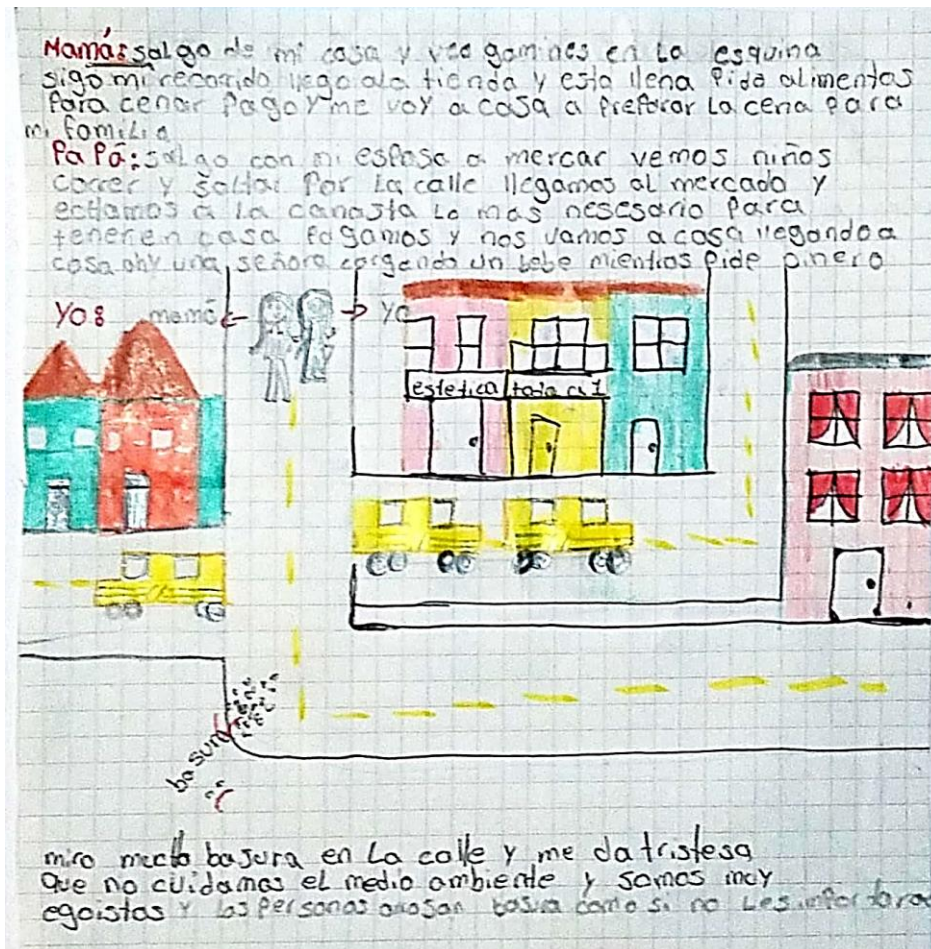 Mamá: salgo de mi casa y veo gamines en la esquina
sigo mi recorrido llego ala tienda y esta llena Pido alimentos
Para cenar Pago y me voy a casa a preparar La cena Para
mi familia
PaPá: salgo con mi esposa a mercar vemos niños
correr y saltar Por La calle llegamos al mercado y
echamos a la canasta Lo mas nesesario Para
tener en casa Pagamos y nos vamos a casa llegando a
casa ahy una señora cargando un bebe mientras Pide dinero
Yo: mamá yo
estetica todo a 1
basura
miro mucha basura en La calle y me da tristesa
Que no cuidamos el medio ambiente y somos muy
egoistas y las Personas basura como si no Les importara